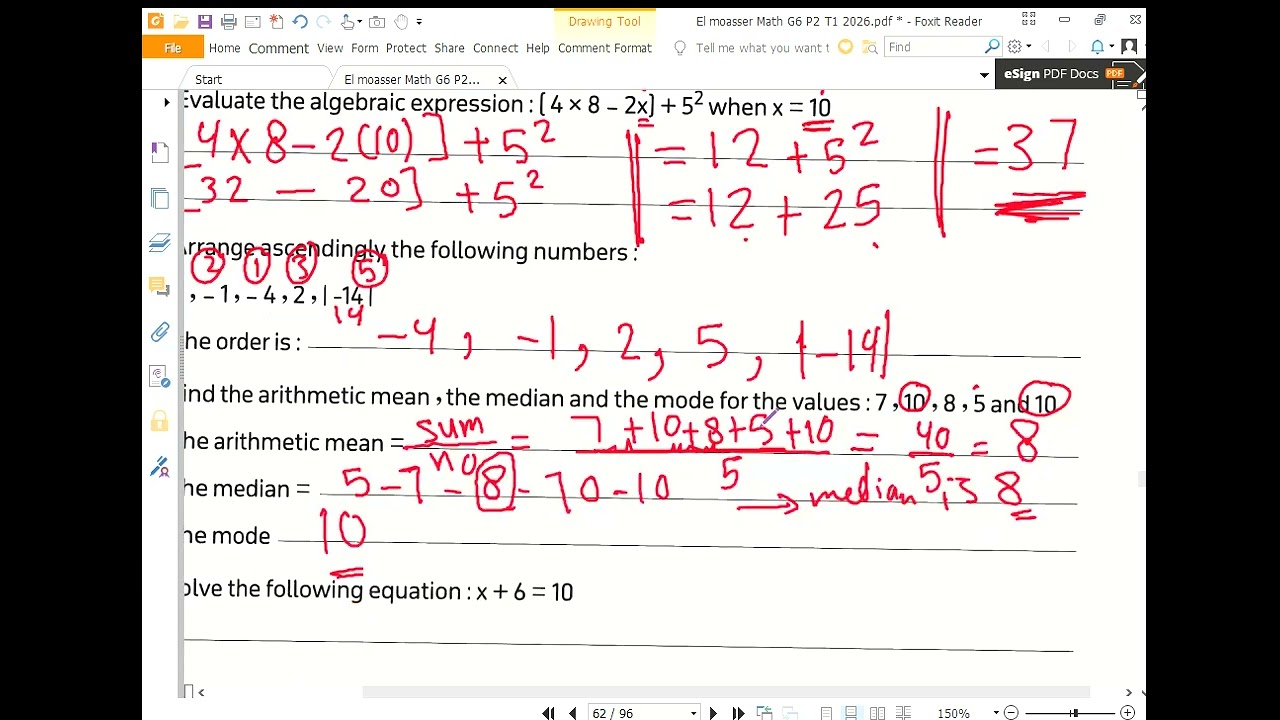 Drawing Tool
El moasser Math G6 P2 T1 2026.pdf * - Foxit Reader
File Home Comment View Form Protect Share Connect Help Comment Format Tell me what you want t Find
Start El moasser Math G6 P2... eSign PDF Docs PDF
Evaluate the algebraic expression : [4 × 8 – 2x] + 5² when x = 10
4 × 8 – 2(10)] + 5² = 12 + 5² = 37
32 — 20] + 5² = 12 + 25
rrange ascendingly the following numbers :
2 1 3 5
, – 1 , – 4 , 2 , | -14 |
14
he order is : –4, -1, 2, 5, |–14|
ind the arithmetic mean , the median and the mode for the values : 7 , 10 , 8 , 5 and 10
he arithmetic mean = sum / no = 7 + 10 + 8 + 5 + 10 / 5 = 40 / 5 = 8
he median = 5 – 7 – 8 – 10 – 10 → median is 8
he mode 10
olve the following equation : x + 6 = 10
62 / 96 150%